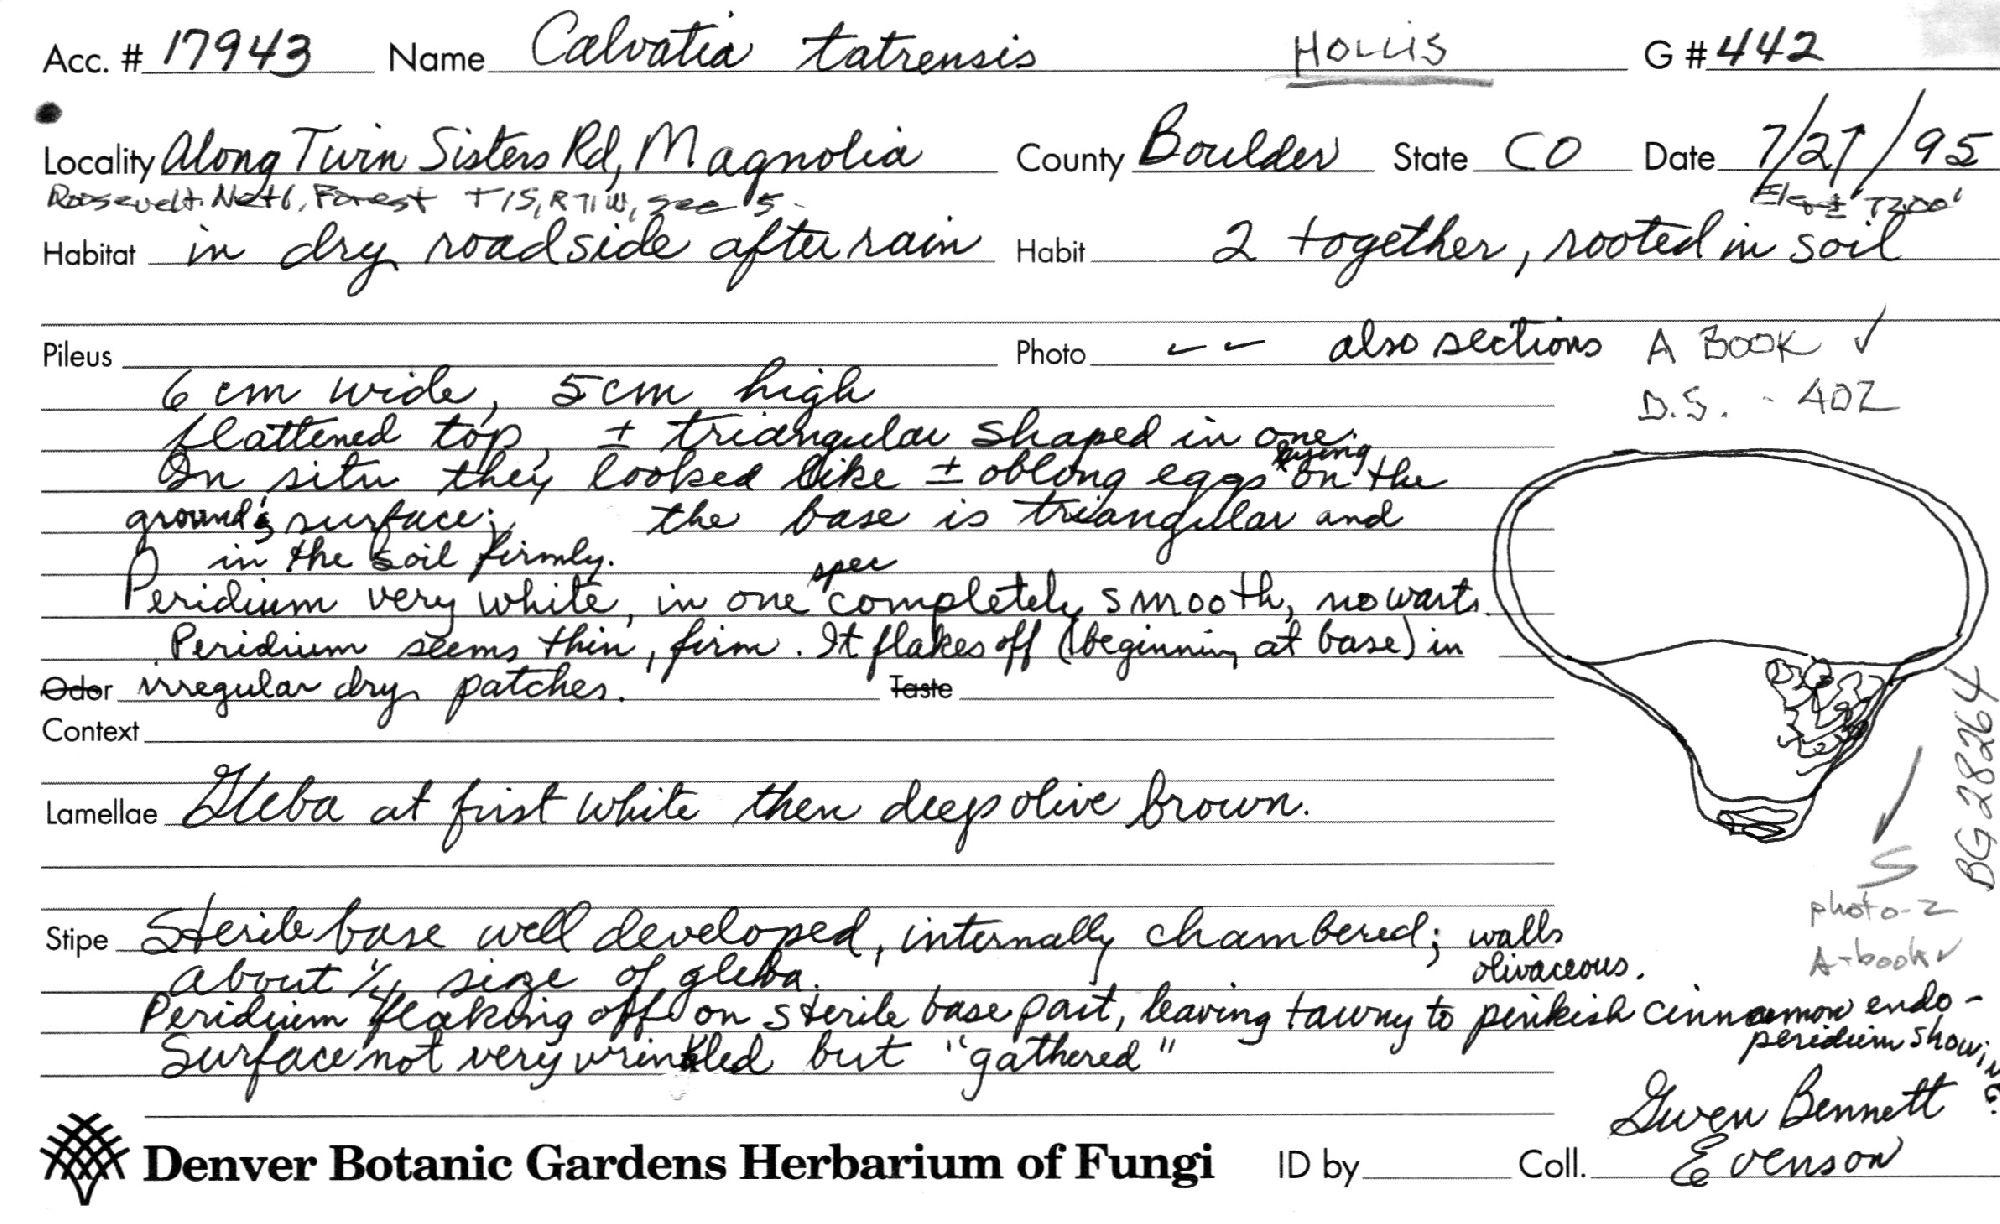 Acc. # 17943 Name Calvatia tatrensis HOLLIS G # 442
Locality Along Twin Sisters Rd, Magnolia County Boulder State CO Date 7/27/95
Roosevelt Natl. Forest T1S, R71W, sec 5 Elev ± 
Habitat in dry roadside after rain Habit 2 together, rooted in soil
Pileus Photo -- also sections A BOOK ✓
6 cm wide, 5 cm high D.S. - 402
flattened top, ± triangular shaped in one.
In situ they looked like ± oblong eggs lying on the
ground's surface; the base is triangular and
in the soil firmly.
Peridium very white, in one spec completely smooth, no warts.
Peridium seems thin, firm. It flakes off (beginning at base) in
Odor irregular dry patches. Taste
Context
Lamellae Gleba at first white then deep olive brown.
BG 28264
S
photo-2
A-book ✓
Stipe Sterile base well developed, internally chambered; walls
olivaceous.
about 1/4 size of gleba.
Peridium flaking off on sterile base part, leaving tawny to pinkish cinnamon endo-
peridium showing.
Surface not very wrinkled but "gathered"
Gwen Bennett
Denver Botanic Gardens Herbarium of Fungi ID by Coll. Evenson